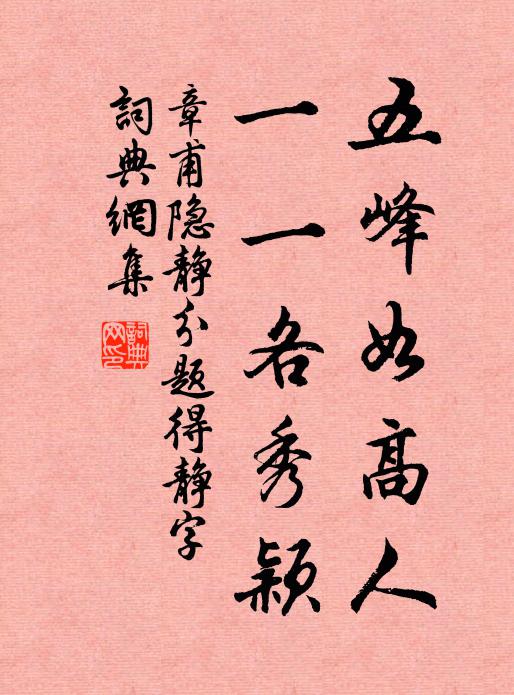 五峰如高人
一一各秀颖
章甫隐静分题得静字
詞典網集
詞典网印